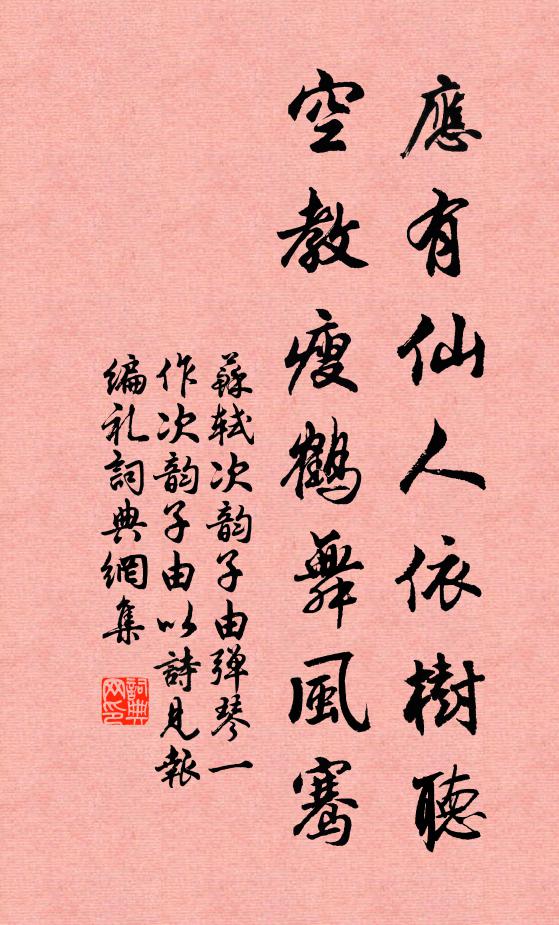 應有仙人依樹聽
空教瘦鶴舞風騫
蘇軾次韵子由弹琴一
作次韵子由以詩見報
编礼詞典網集
詞典网印